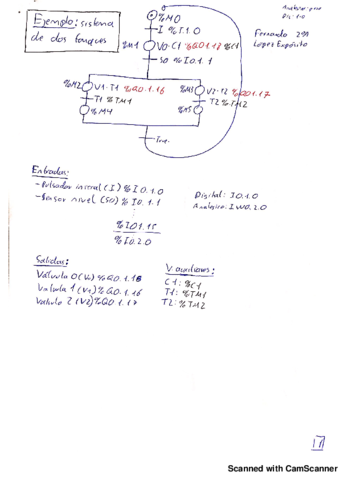 Ejemplo: sistema
de dos tanques
%M0
I %I.1.0
%M1 V0·C1 %Q0.1.18 %C1
S0 %I0.1.1
%M2 V1·T1 %Q0.1.16
%M3 V2·T2 %Q0.1.17
T1 %TM1
T2 %TM2
%M4
%M5
Fernando
López Expósito
Entradas:
- Pulsador inicial (I) %I0.1.0
- Sensor nivel (S0) %I0.1.1
%I0.1.15
%I0.2.0
Digital: I0.1.0
Analógico: IW0.2.0
Salidas:
Válvula 0 (V0) %Q0.1.18
Valvula 1 (V1) %Q0.1.16
Valvula 2 (V2) %Q0.1.17
Variables:
C1: %C1
T1: %TM1
T2: %TM2
17
Scanned with CamScanner